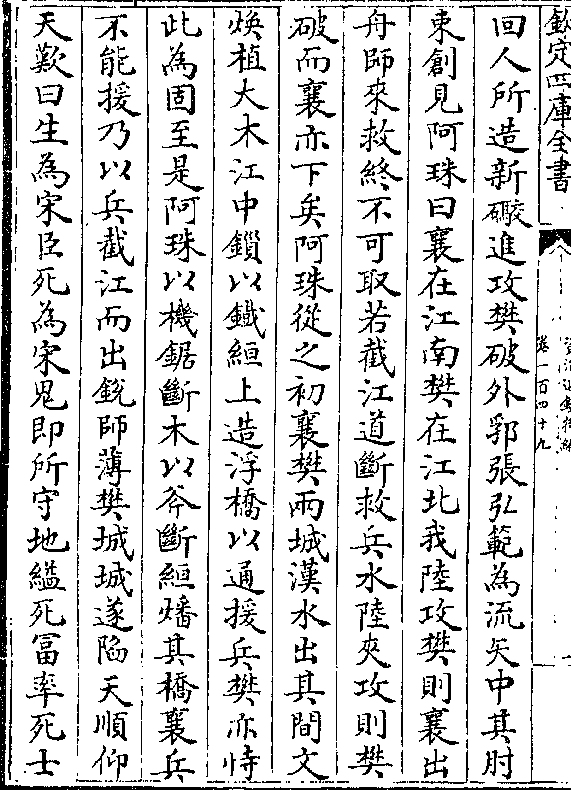 欽定四庫全書
卷一百四十九
回人所造新礮進攻樊破外郛張弘範為流矢中其肘
束創見阿珠曰襄在江南樊在江北我陸攻樊則襄出
舟師來救終不可取若截江道斷救兵水陸夾攻則樊
破而襄亦下矣阿珠從之初襄樊兩城漢水出其間文
煥植大木江中鎖以鐵絙上造浮橋以通援兵樊亦恃
此為固至是阿珠以機鋸斷木以斧斷絙燔其橋襄兵
不能援乃以兵截江而出銳師薄樊城城遂陷天順仰
天歎曰生為宋臣死為宋鬼即所守地縊死冨率死士